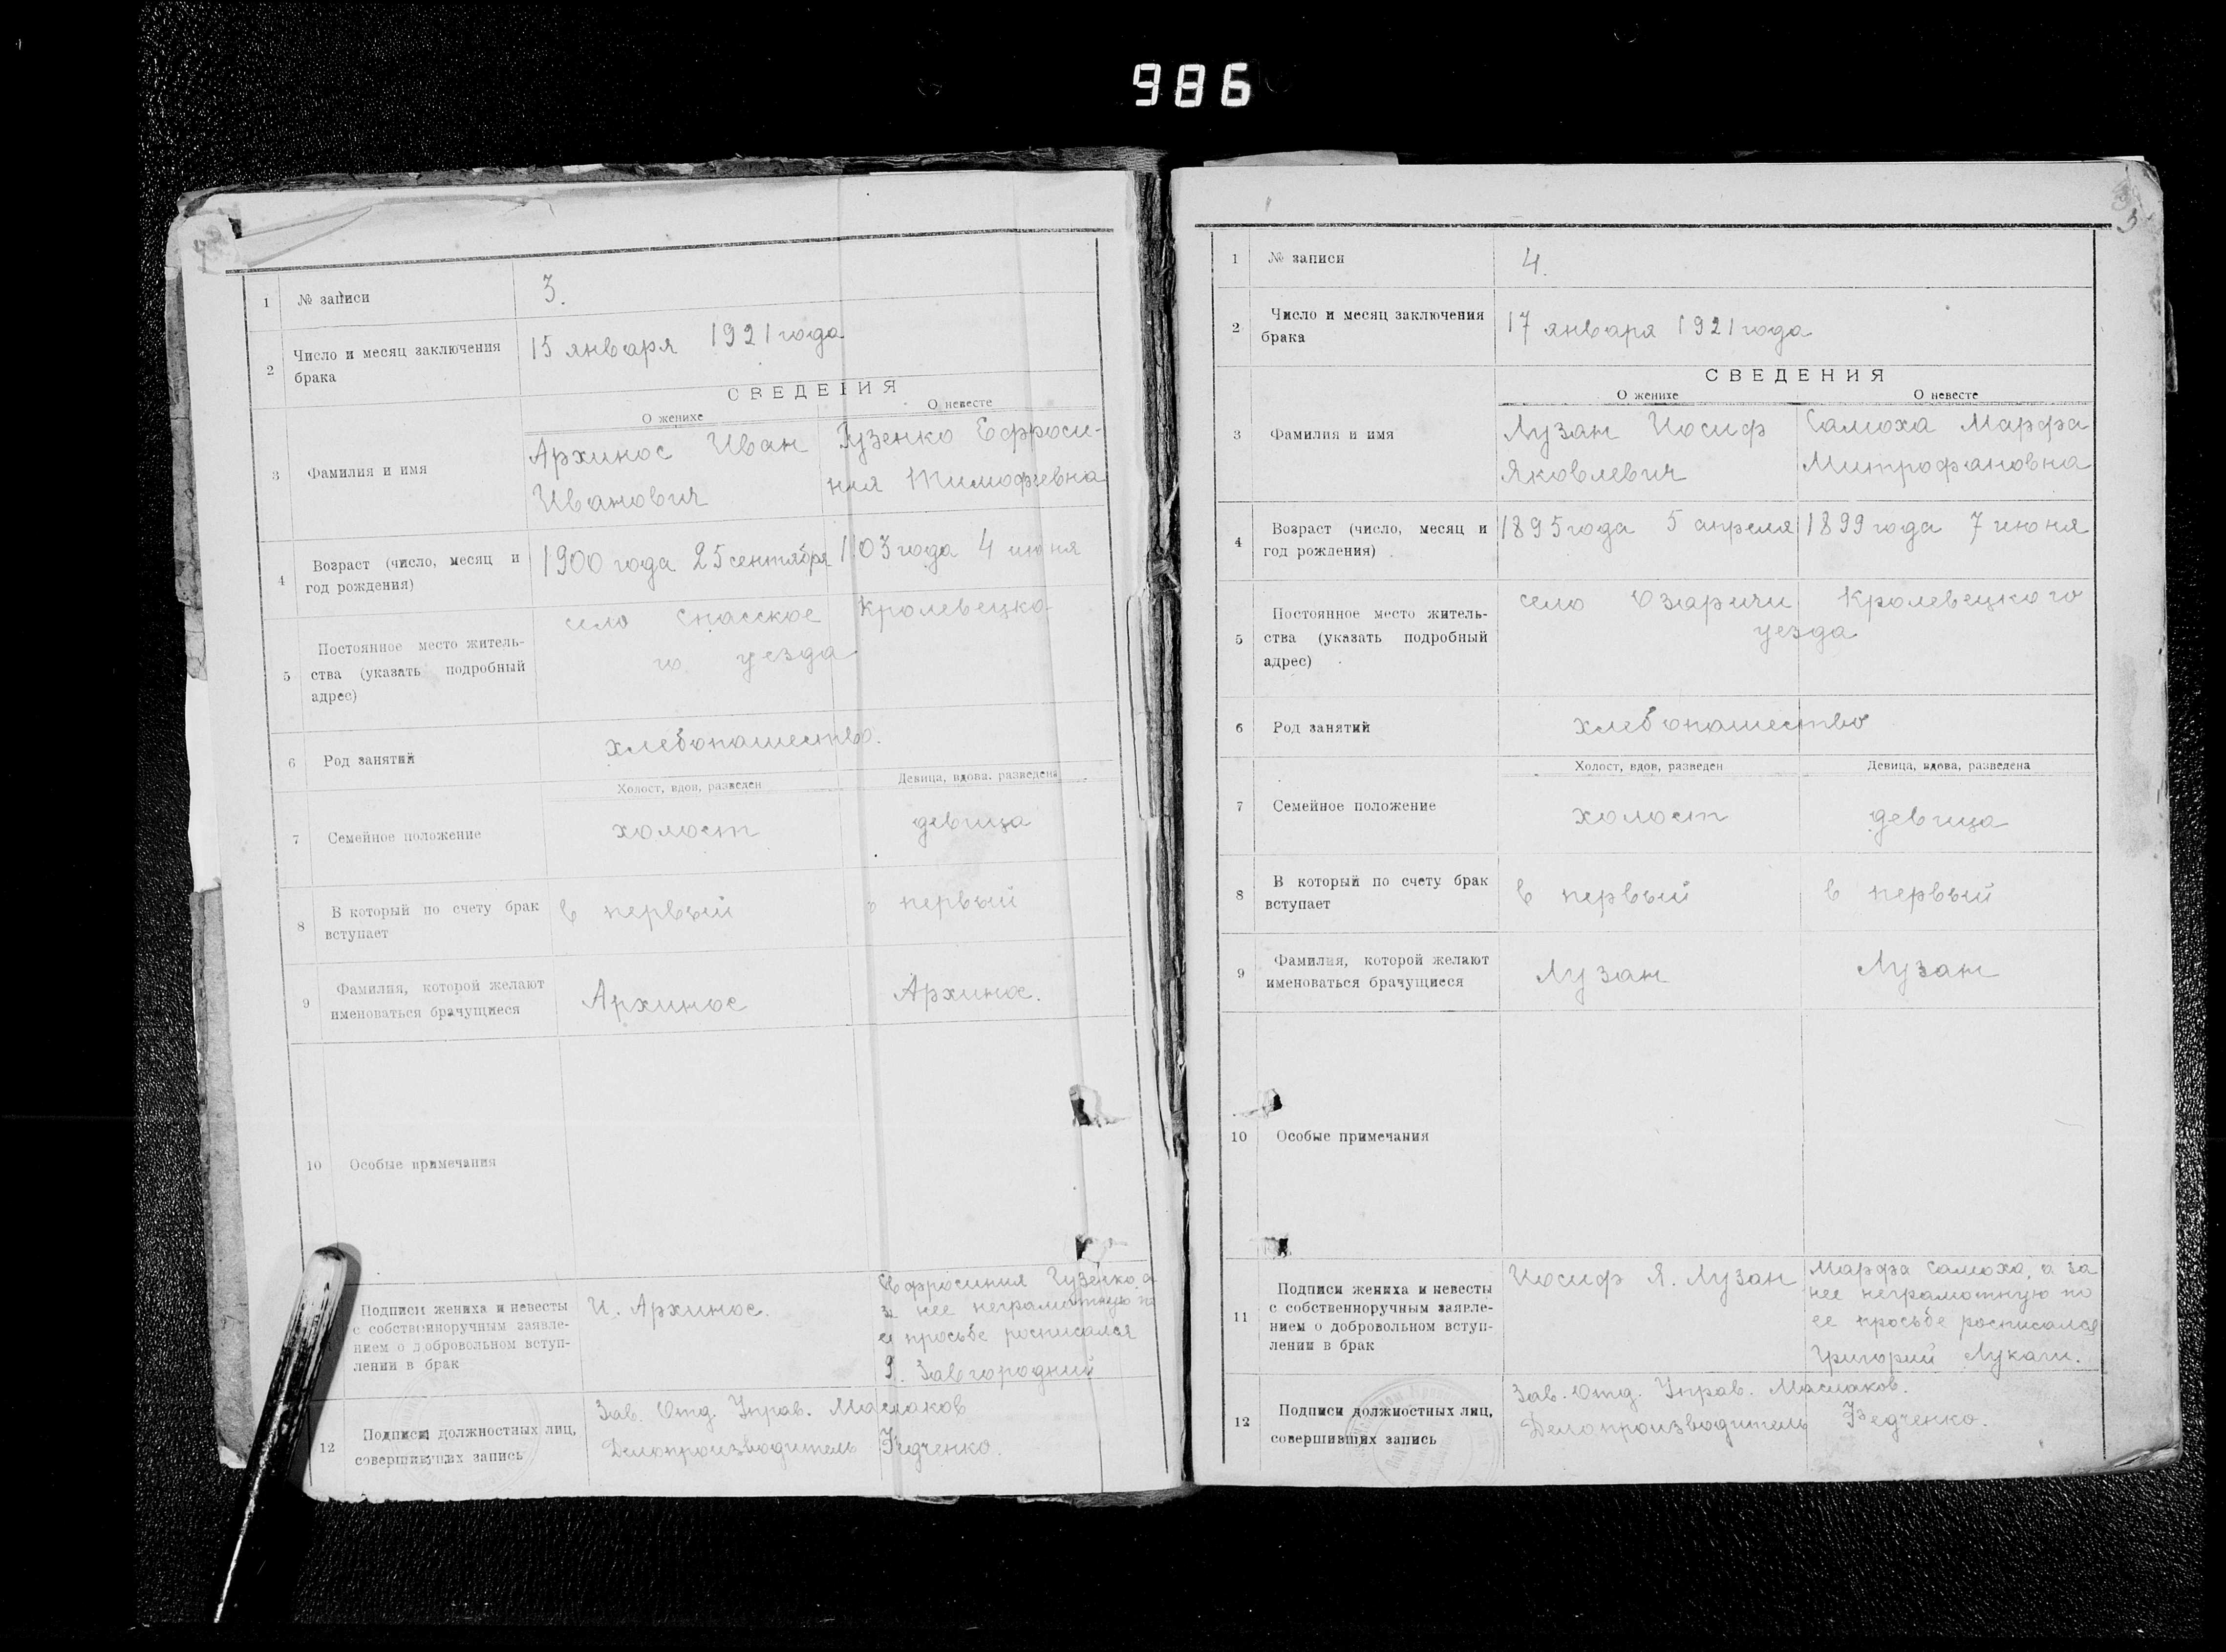 986
1 № записи 3.
2 Число и месяц заключения
брака
15 января 1921 года
СВЕДЕНИЯ
О женихе О невесте
3 Фамилия и имя
Архинос Иван
Иванович
Гузенко Ефроси-
ния Тимофеевна
4 Возраст (число, месяц и
год рождения)
1900 года 25 сентября 1903 года 4 июня
5 Постоянное место житель-
ства (указать подробный
адрес)
село Спасское Кролевецко-
го уезда
6 Род занятий хлебопашество.
Холост, вдов, разведен Девица, вдова, разведена
7 Семейное положение холост девица
8 В который по счету брак
вступает
в первый в первый
9 Фамилия, которой желают
именоваться брачущиеся
Архинос Архинос.
10 Особые примечания
Подписи жениха и невесты
с собственноручным заявле-
нием о добровольном вступ-
лении в брак
И. Архинос.
Ефросиния Гузенко, а
за нее неграмотную по
ея просьбе росписался
Завгородний
12 Подписи должностных лиц,
совершивших запись
Зав. Отд. Управ. Маслаков
Делопроизводитель Федченко.
1 № записи 4.
2 Число и месяц заключения
брака
17 января 1921 года
СВЕДЕНИЯ
О женихе О невесте
3 Фамилия и имя
Лузан Иосиф
Яковлевич
Самоха Марфа
Митрофановна
4 Возраст (число, месяц и
год рождения)
1895 года 5 апреля 1899 года 7 июня
5 Постоянное место житель-
ства (указать подробный
адрес)
село Озаричи Кролевецкого
уезда
6 Род занятий хлебопашество
Холост, вдов, разведен Девица, вдова, разведена
7 Семейное положение холост девица
8 В который по счету брак
вступает
в первый в первый
9 Фамилия, которой желают
именоваться брачущиеся
Лузан Лузан
10 Особые примечания
11 Подписи жениха и невесты
с собственноручным заявле-
нием о добровольном вступ-
лении в брак
Иосиф Я. Лузан
Марфа Самоха, а за
нее неграмотную по
ее просьбе росписался
Григорий Лукаш.
12 Подписи должностных лиц,
совершивших запись
Зав. Отд. Управ. Маслаков.
Делопроизводитель Федченко.